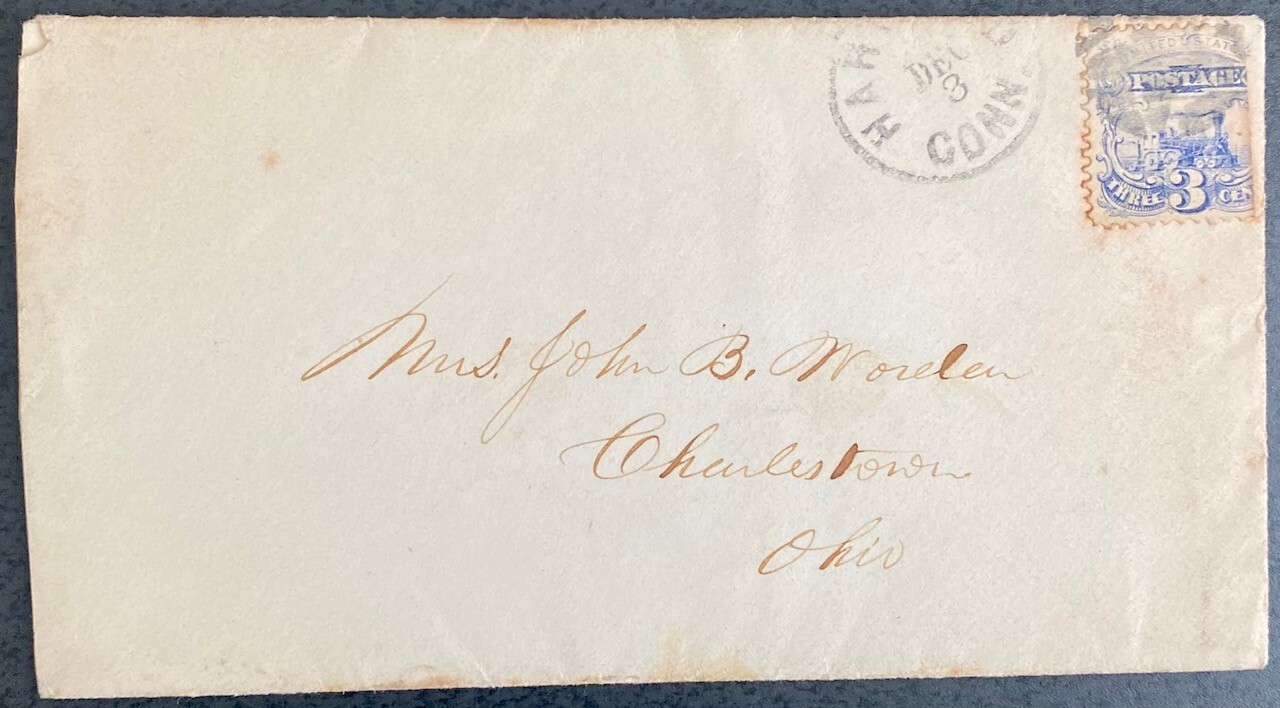 HAR
DEC
3
CONN.
UNITED STAT
POSTAGE
THREE 3 CEN
Mrs. John B. Worden
Charlestown
Ohio